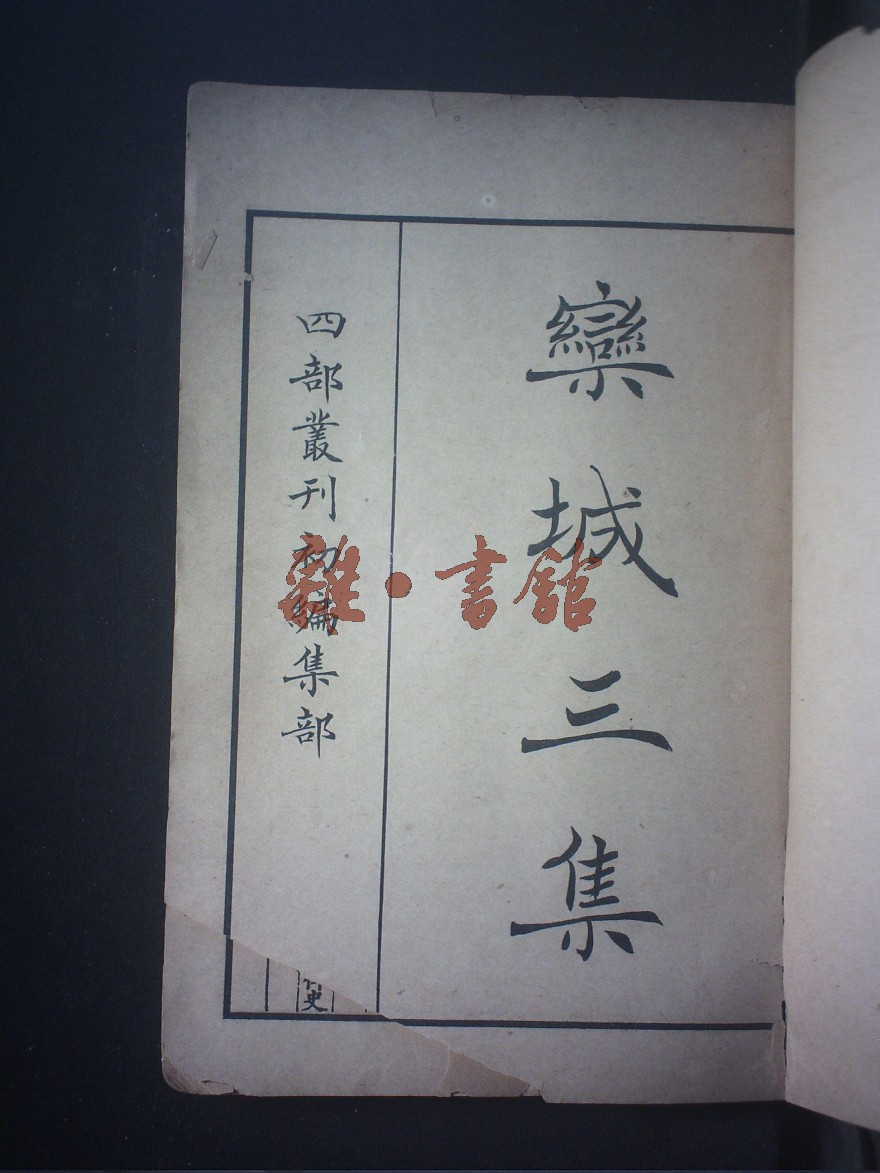 欒城三集
四部叢刊初編集部
雜·書館
史